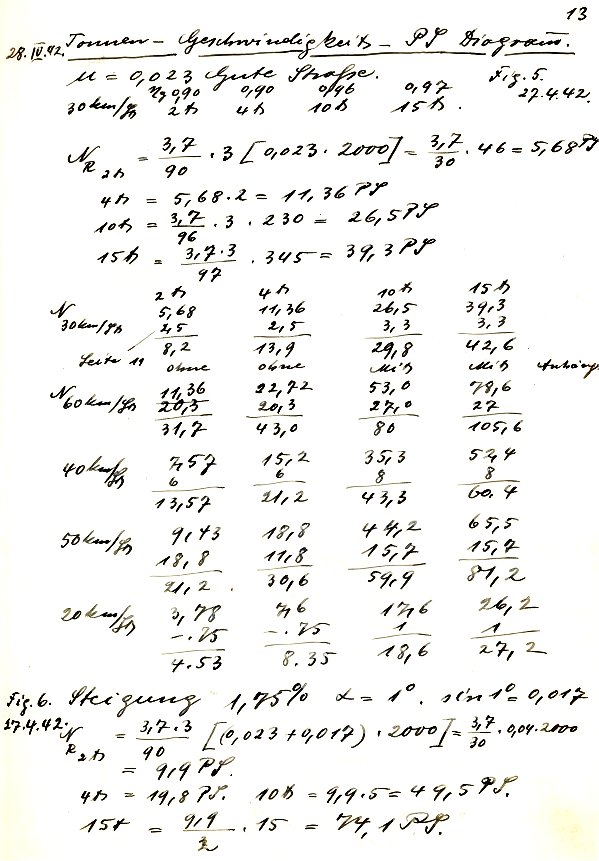 13
28.IV.42. Tonnen - Geschwindigkeits - PS Diagramm.
µ = 0,023 Gute Straße. Fig. 5.
η 0,90 0,90 0,96 0,97 27.4.42.
30 km/h 2 t 4 t 10 t 15 t.
N R 2t = 3,7/90 · 3 [0,023 · 2000] = 3,7/30 · 46 = 5,68 PS
4t = 5,68 · 2 = 11,36 PS
10t = 3,7/96 · 3 · 230 = 26,5 PS
15t = 3,7·3/97 · 345 = 39,3 PS
2 t 4 t 10 t 15 t
N 5,68 11,36 26,5 39,3
30 km/h 2,5 2,5 3,3 3,3
Seite 11 8,2 13,9 29,8 42,6
ohne ohne Mit Mit Anhäng.
N 60 km/h 11,36 22,72 53,0 78,6
20,3 20,3 27,0 27
31,7 43,0 80 105,6
40 km/h 7,57 15,2 35,3 52,4
6 6 8 8
13,57 21,2 43,3 60.4
50 km/h 9,43 18,8 44,2 65,5
18,8 11,8 15,7 15,7
21,2. 30,6 59,9 81,2
20 km/h 3,78 7,6 17,6 26,2
-.75 -.75 1 1
4.53 8.35 18,6 27,2
Fig. 6. Steigung 1,75% α = 1°. sin 1° = 0,017
27.4.42. N R 2t = 3,7·3/90 [(0,023 + 0,017) · 2000] = 3,7/30 · 0,04 · 2000
= 9,9 PS.
4t = 19,8 PS. 10t = 9,9 · 5 = 49,5 PS.
15t = 9,9/2 · 15 = 74,1 PS.